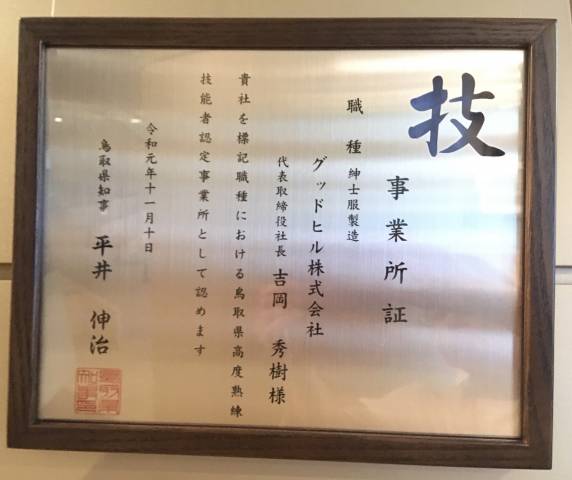 技
事業所証
職種 紳士服製造
グッドヒル株式会社
代表取締役社長 吉岡 秀樹様
貴社を標記職種における鳥取県高度熟練
技能者認定事業所として認めます
令和元年十一月十日
鳥取県知事 平井 伸治